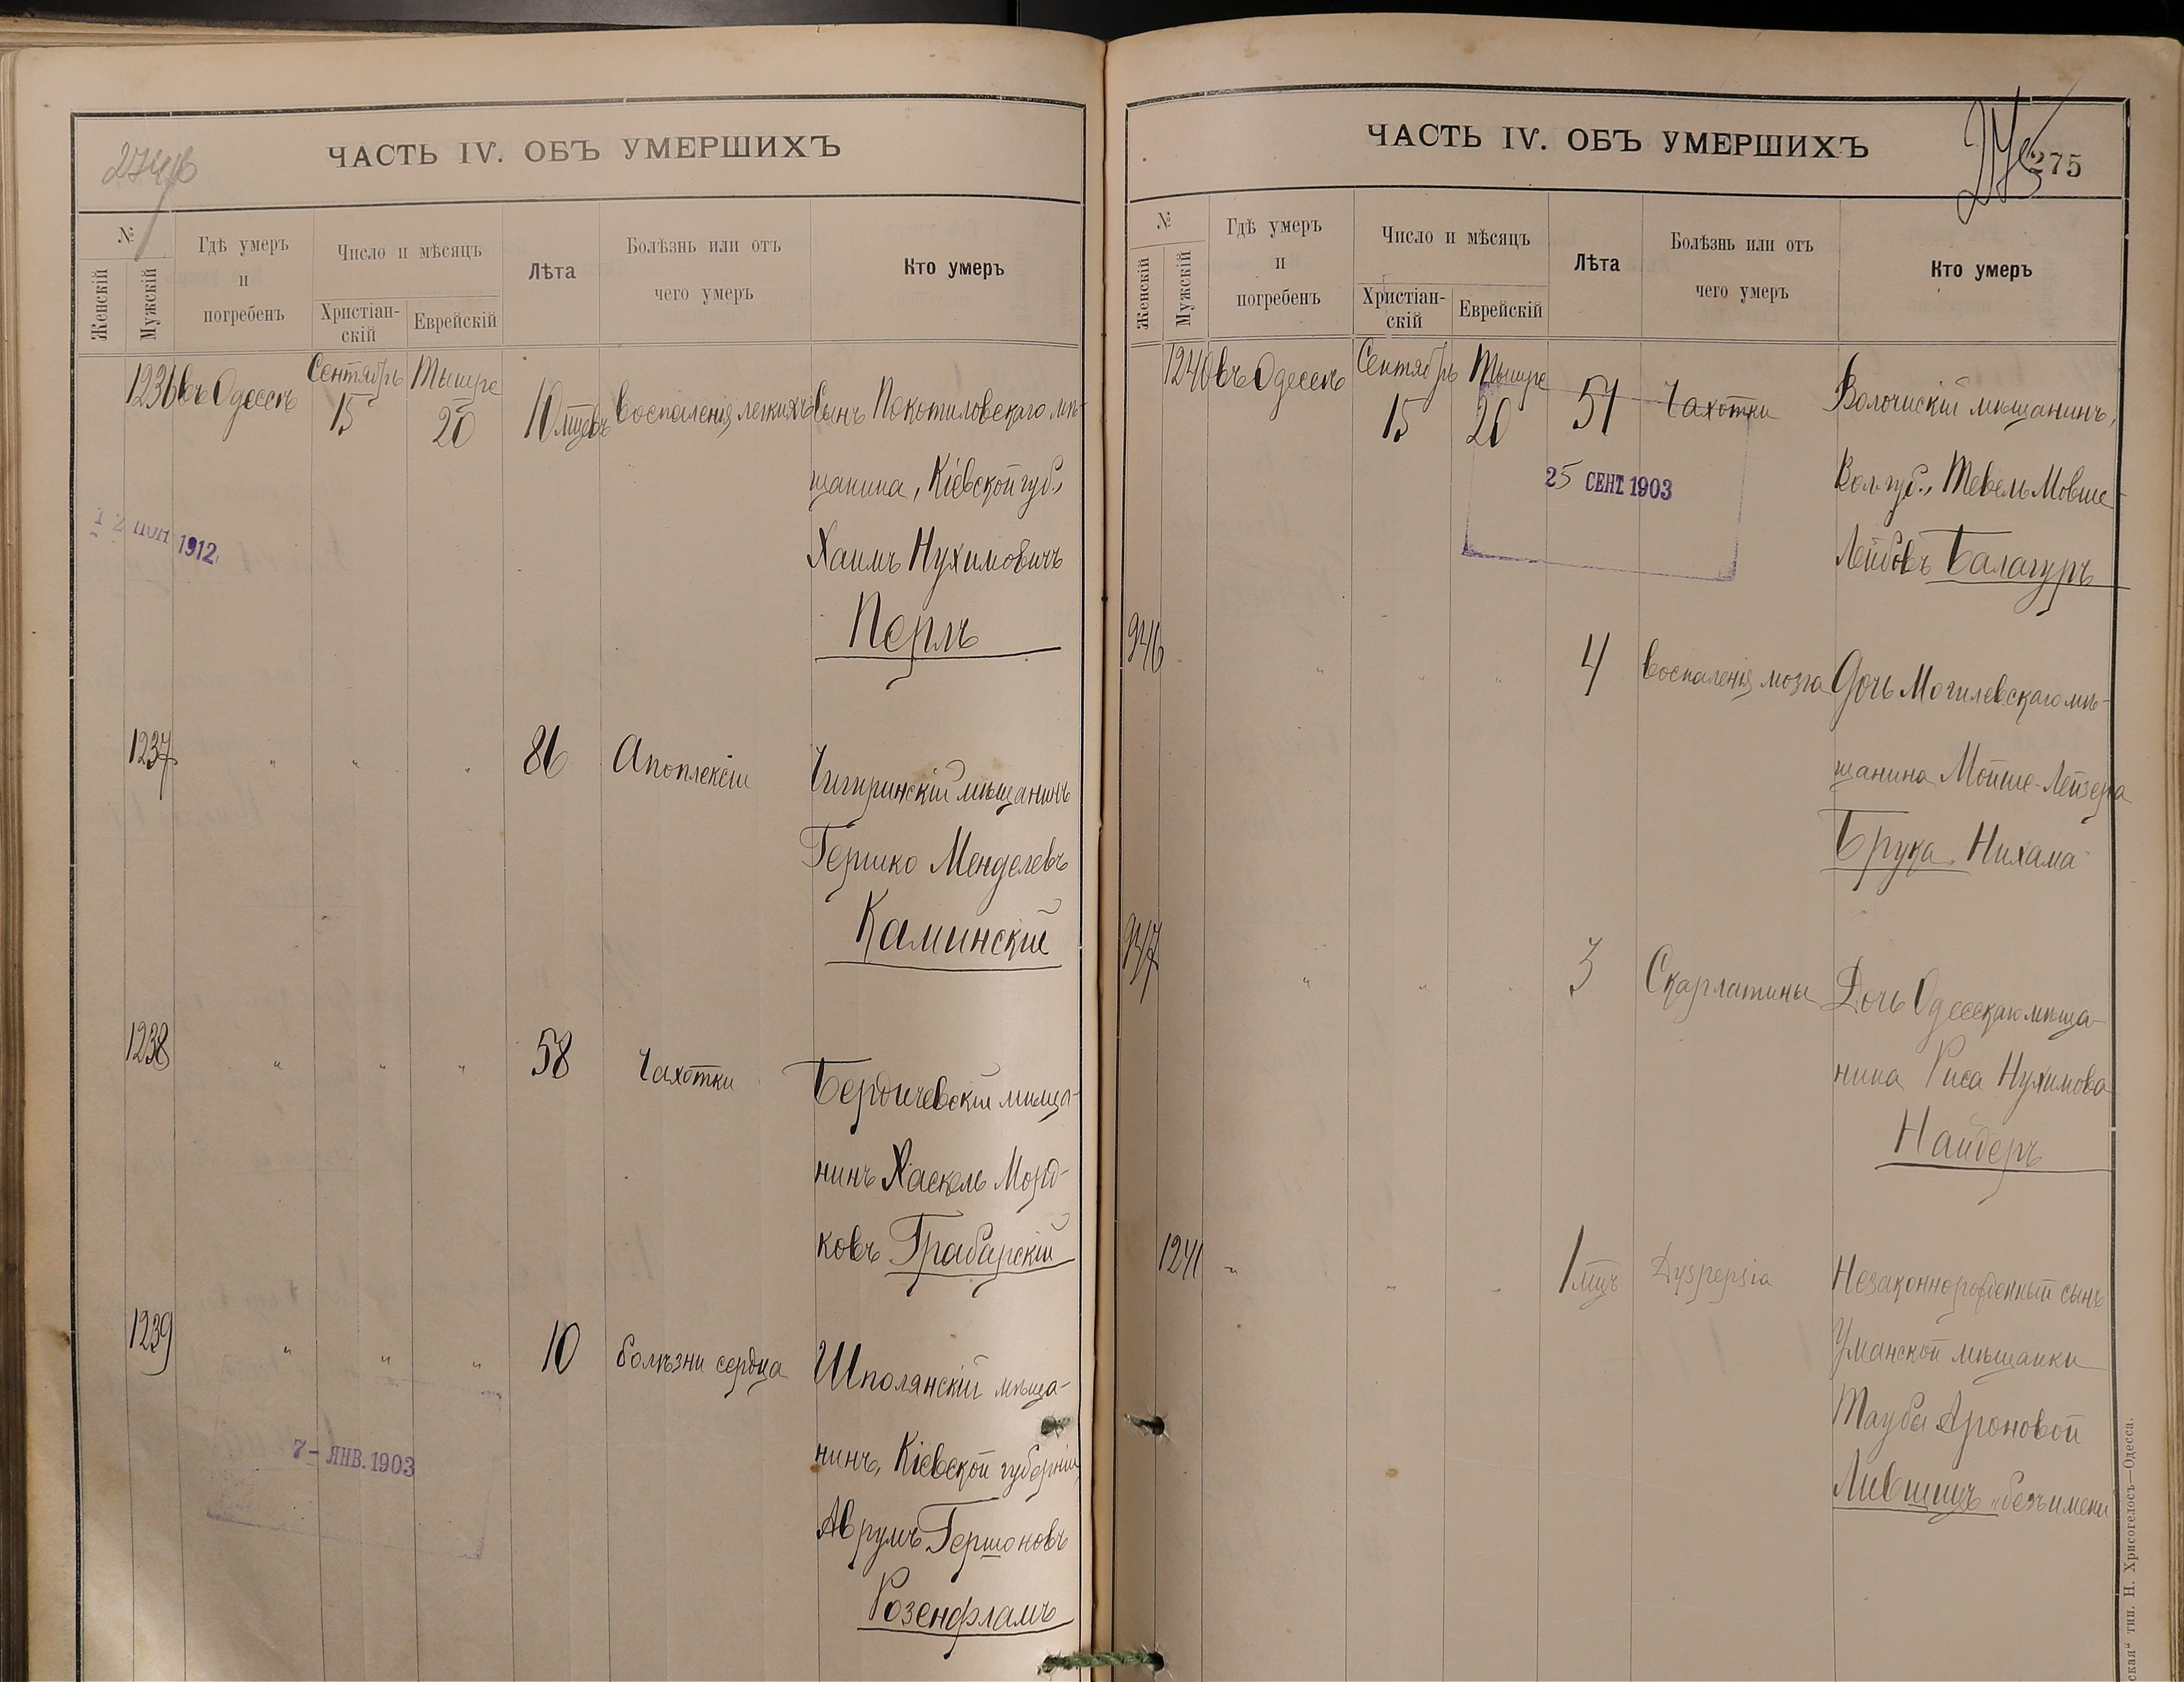 ЧАСТЬ IV. ОБЪ УМЕРШИХЪ
№
Женскій
Мужскій
Гдѣ умеръ
и
погребенъ
Число и мѣсяцъ
Христіан-
скій
Еврейскій
Лѣта
Болѣзнь или отъ
чего умеръ
Кто умеръ
1236 въ Одессѣ Сентябрь 15 Тишре 20 10 мцевъ воспаленія легкихъ Сынъ Покотиловскаго мѣ-
щанина, Кіевской губ.,
Хаимъ Нухимовичъ
Перль
1912
1237 " " " 86 Апоплексіи Чигиринскій мѣщанинъ
Гершко Менделевъ
Каминскій
1238 " " " 58 Чахотки Бердичевскій мѣща-
нинъ Хаскель Морд-
ковъ Грабарскій
1239 " " " 10 болѣзни сердца Шполянскій мѣща-
нинъ, Кіевской губерніи
Аврумъ Гершоновъ
Розенфламъ
7- ЯНВ. 1903
ЧАСТЬ IV. ОБЪ УМЕРШИХЪ
275
275
№
Женскій
Мужскій
Гдѣ умеръ
и
погребенъ
Число и мѣсяцъ
Христіан-
скій
Еврейскій
Лѣта
Болѣзнь или отъ
чего умеръ
Кто умеръ
1240 въ Одессѣ Сентябрь 15 Тишре 20 51 Чахотки Волочискій мѣщанинъ,
Вол. губ., Тевель Мовше-
Лейбовъ Балагуръ
25 СЕНТ. 1903
946 " " " 4 воспаленія мозга Дочь Могилевскаго мѣ-
щанина Мойше-Лейзера
Брука, Нихама
947 " " " 3 Скарлатины Дочь Одесскаго мѣща-
нина Риса Нухимова
Найберъ
1241 " " " 1 мцъ Dyspepsia Незаконнорожденный сынъ
Уманской мѣщанки
Тауба Ароновой
Лившицъ "безъ имени
ская" тип. Н. Хрисогелосъ—Одесса.